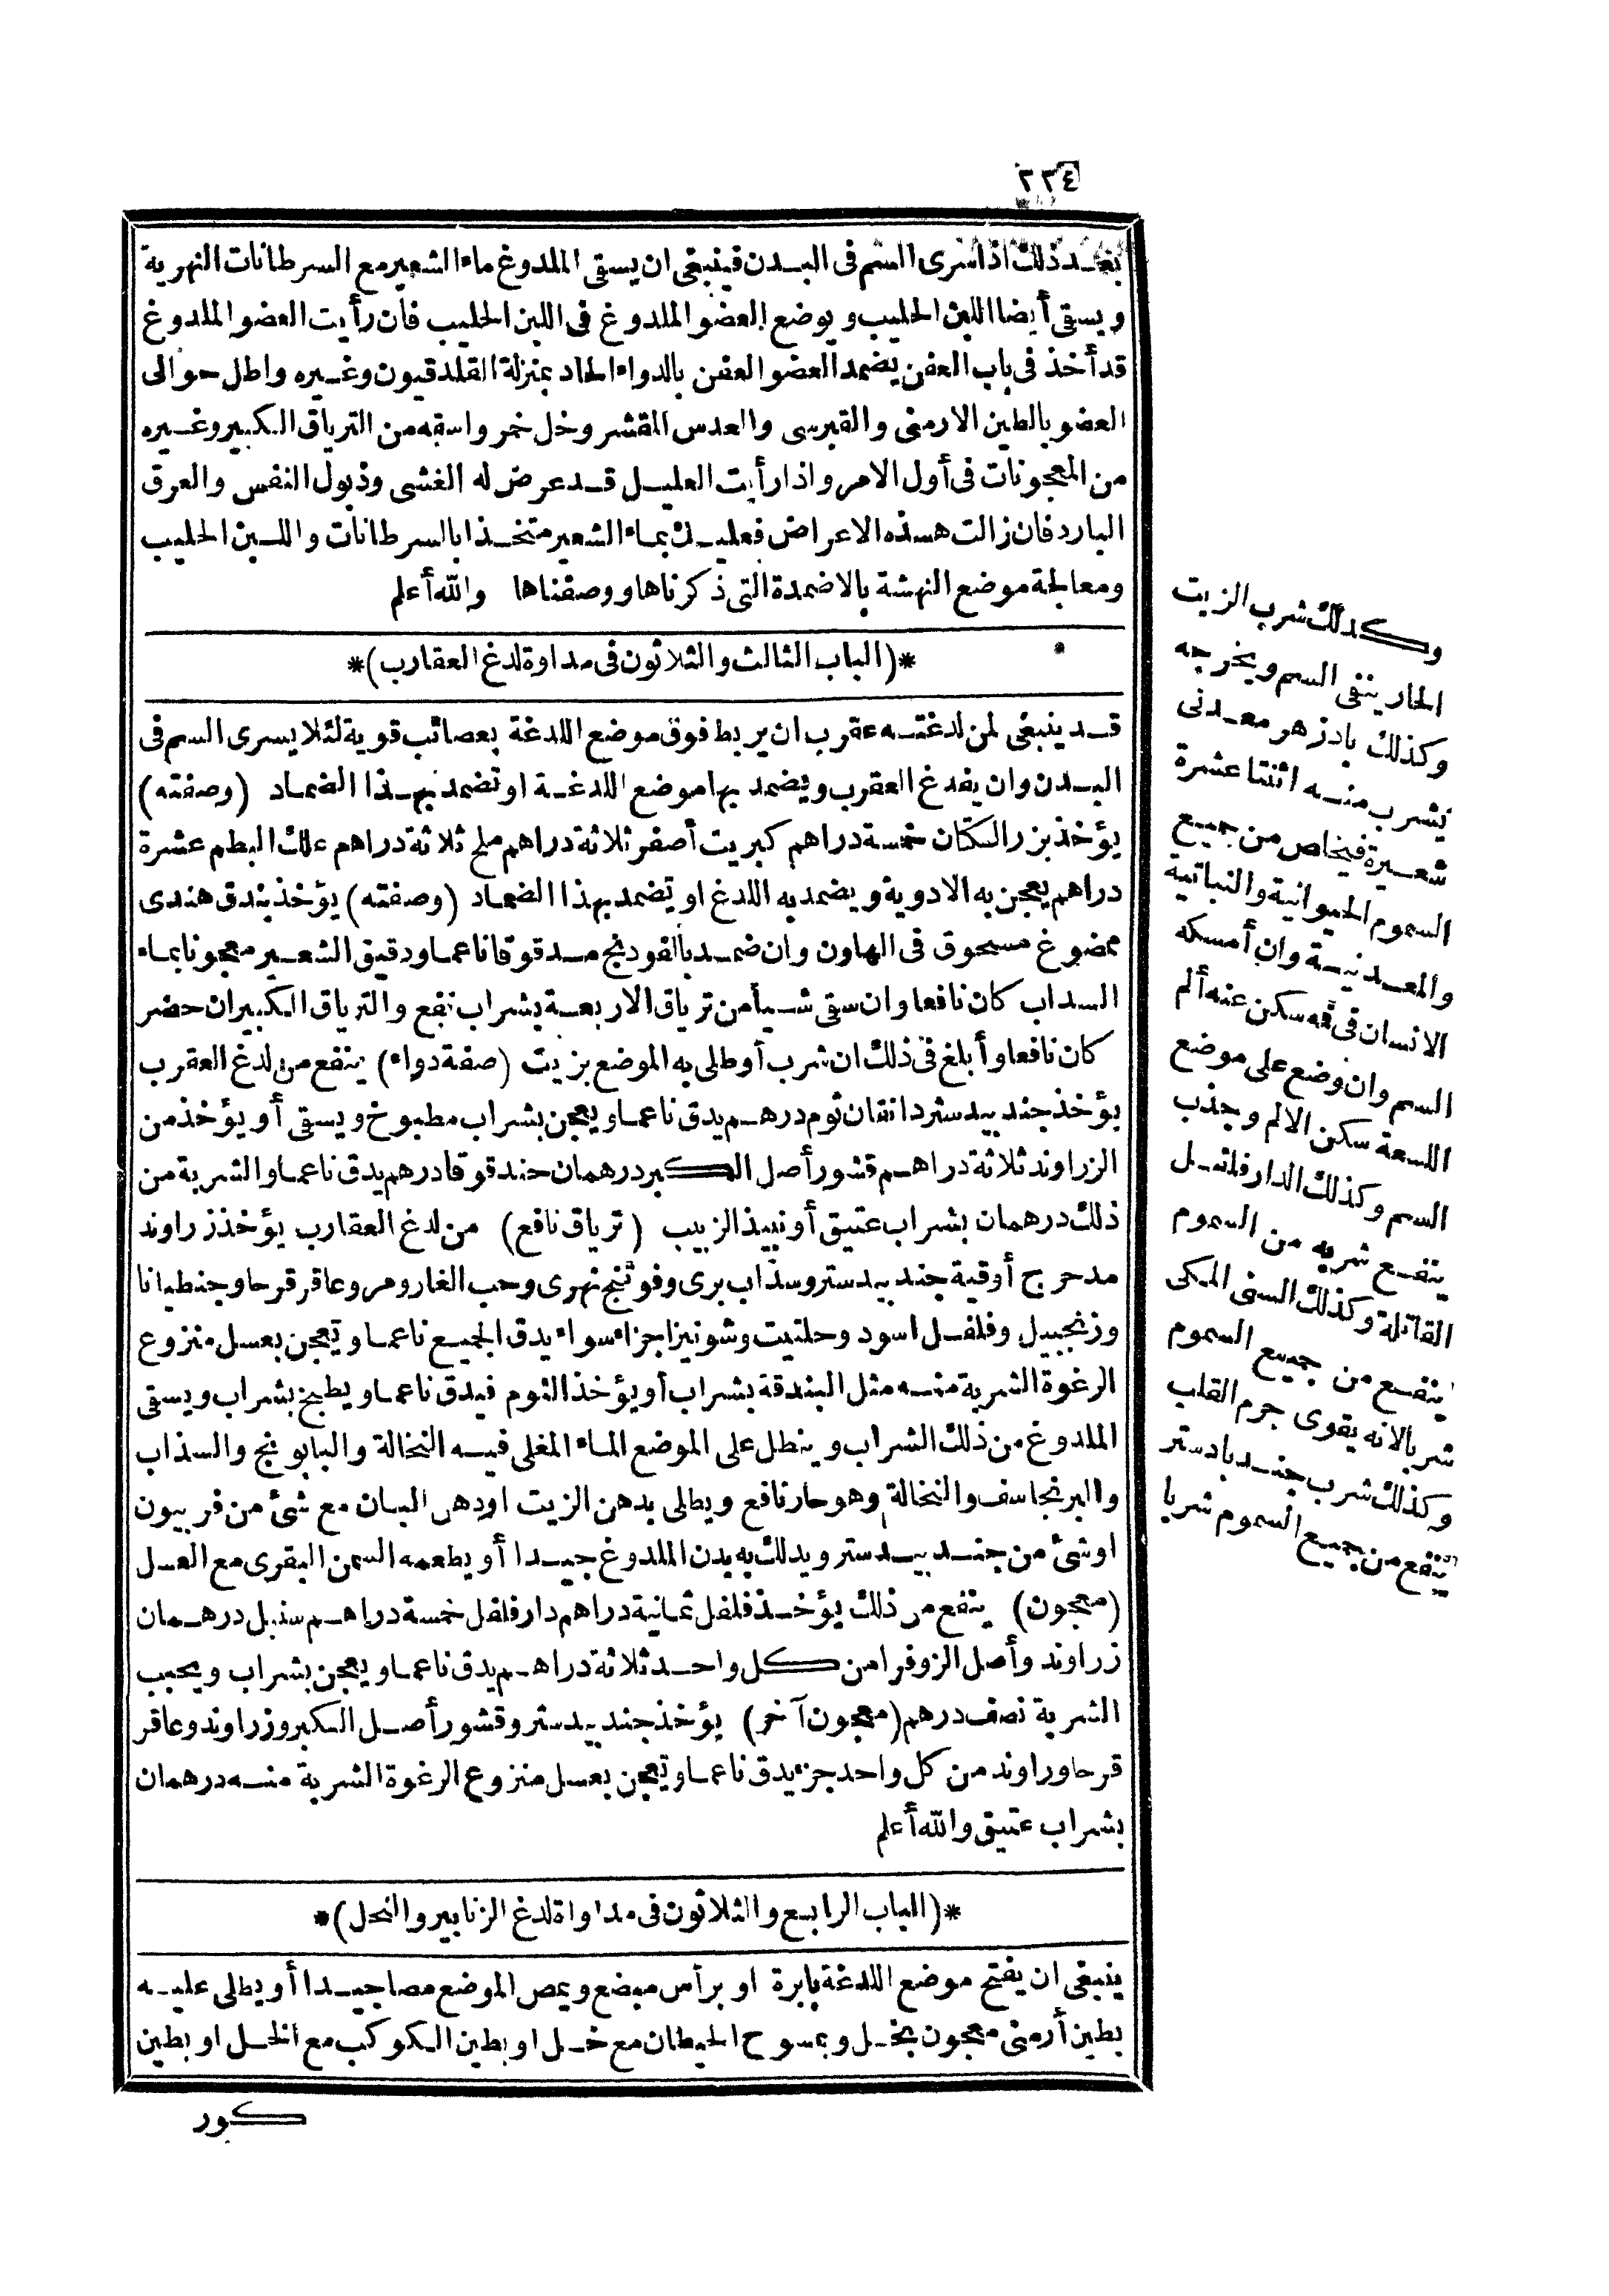 ٢٣٤
بعد ذلك اذا سرى السم فى البدن فينبغى ان يسقى الملدوغ ماء الشعير مع السرطانات النهرية
ويسقى أيضا اللبن الحليب ويوضع العضو الملدوغ فى اللبن الحليب فان رأيت العضو الملدوغ
قد أخذ فى باب العفن يضمد العضو العفن بالدواء الحاد بمنزلة القلدقيون وغيره واطل حوالى
العضو بالطين الارمنى والقبرسى والعدس المقشر وخل خمر واسقه من الترياق الكبير وغيره
من المعجونات فى أول الامر واذا رأيت العليل قد عرض له الغشى وذبول النفس والعرق
البارد فان زالت هذه الاعراض فعليك بماء الشعير متخذا بالسرطانات واللبن الحليب
ومعالجة موضع النهشة بالاضمدة التى ذكرناها ووصفناها والله أعلم
*(الباب الثالث والثلاثون فى مداوة لدغ العقارب)*
قد ينبغى لمن لدغته عقرب ان يربط فوق موضع اللدغة بعصائب قوية لئلا يسرى السم فى
البدن وان يفدغ العقرب ويضمد بها موضع اللدغة او تضمد بهذا الضماد (وصفته)
يؤخذ بزر الكتان خمسة دراهم كبريت أصفر ثلاثة دراهم ملح ثلاثة دراهم علك البطم عشرة
دراهم يعجن به الادوية ويضمد به اللدغ او تضمد بهذا الضماد (وصفته) يؤخذ بندق هندى
ممضوغ مسحوق فى الهاون وان ضمد بالفودنج مدقوقا ناعما ودقيق الشعير معجونا بماء
السداب كان نافعا وان سقى شيأ من ترياق الاربعة بشراب نفع والترياق الكبير ان حضر
كان نافعا وأبلغ فى ذلك ان شرب أو طلى به الموضع بزيت (صفة دواء) ينفع من لدغ العقرب
يؤخذ جند بيدستر دانقان ثوم درهم يدق ناعما ويعجن بشراب مطبوخ ويسقى أو يؤخذ من
الزراوند ثلاثة دراهم قشور أصل الكبر درهمان حندقوقا درهم يدق ناعما والشربة من
ذلك درهمان بشراب عتيق أو نبيذ الزبيب (ترياق نافع) من لدغ العقارب يؤخذ زراوند
مدحرج أوقية جند بيدستر وسذاب برى وفوتنج نهرى وحب الغار ومر وعاقر قرحا وجنطيانا
وزنجبيل وفلفل اسود وحلتيت وشونيز اجزاء سواء يدق الجميع ناعما ويعجن بعسل منزوع
الرغوة الشربة منه مثل البندقة بشراب أو يؤخذ الثوم فيدق ناعما ويطبخ بشراب ويسقى
الملدوغ من ذلك الشراب وينطل على الموضع الماء المغلى فيه النخالة والبابونج والسذاب
والبرنجاسف والنخالة وهو حار نافع ويطلى بدهن الزيت اودهن البان مع شئ من فربيون
اوشئ من جند بيدستر ويدلك به بدن الملدوغ جيدا أو يطعمه السمن البقرى مع العسل
(معجون) ينفع من ذلك يؤخذ فلفل ثمانية دراهم دار فلفل خمسة دراهم سنبل درهمان
زراوند وأصل الزوفرا من كل واحد ثلاثة دراهم يدق ناعما ويعجن بشراب ويحبب
الشربة نصف درهم (معجون آخر) يؤخذ جند بيدستر وقشور أصل الكبر وزراوند وعاقر
قرحا وراوند من كل واحد جزء يدق ناعما ويعجن بعسل منزوع الرغوة الشربة منه درهمان
بشراب عتيق والله أعلم
*(الباب الرابع والثلاثون فى مداواة لدغ الزنابير والنحل)*
ينبغى ان يفتح موضع اللدغة بابرة او برأس مبضع ويمص الموضع مصا جيدا أو يطلى عليه
بطين أرمنى معجون بخل وبمسوح الحيطان مع خل او بطين الكوكب مع الخل او بطين
كور
وكذلك شرب الزيت
الحار ينقى السم ويخرجه
وكذلك بادزهر معدنى
يشرب منه اثنتا عشرة
شعيرة فيخلص من جميع
السموم الحيوانية والنباتية
والمعدنية وان أمسكه
الانسان فى فمه سكن عنه ألم
السم وان وضع على موضع
اللسعة سكن الالم وجذب
السم وكذلك الدار فلفل
ينفع شربه من السموم
القاتلة وكذلك السنى المكى
ينفع من جميع السموم
شربا لانه يقوى جرم القلب
وكذلك شرب جند بادستر
ينفع من جميع السموم شربا